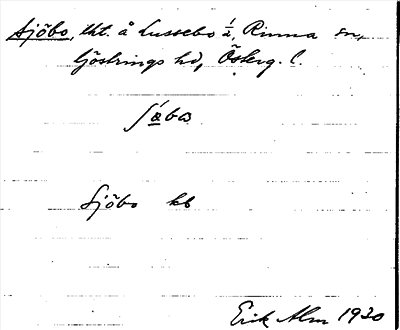 Sjöbo, tht. å Lussebo ½, Rinna sn,
Göstrings hd, Österg. l.
Sjöbo kb
Erik Alm 1930